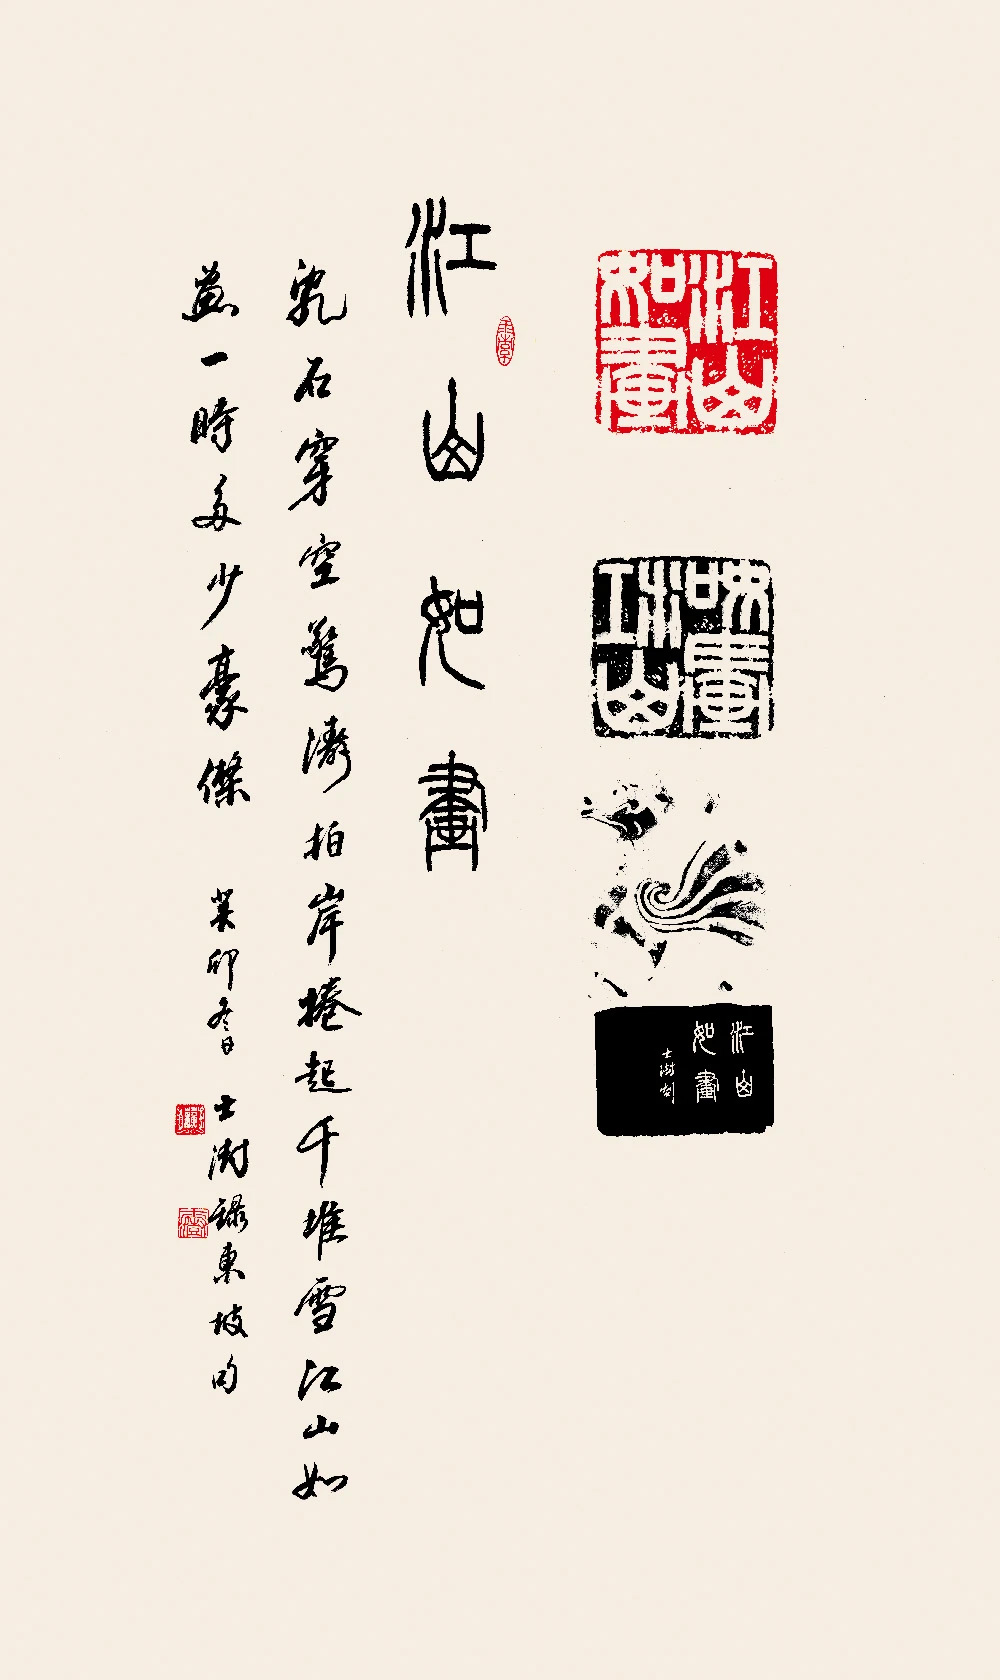 江山如畫
江山如畫
江山
如畫
士澍刻
江山如畫
亂石穿空驚濤拍岸捲起千堆雪江山如
畫一時多少豪傑 癸卯冬日 士澍錄東坡句